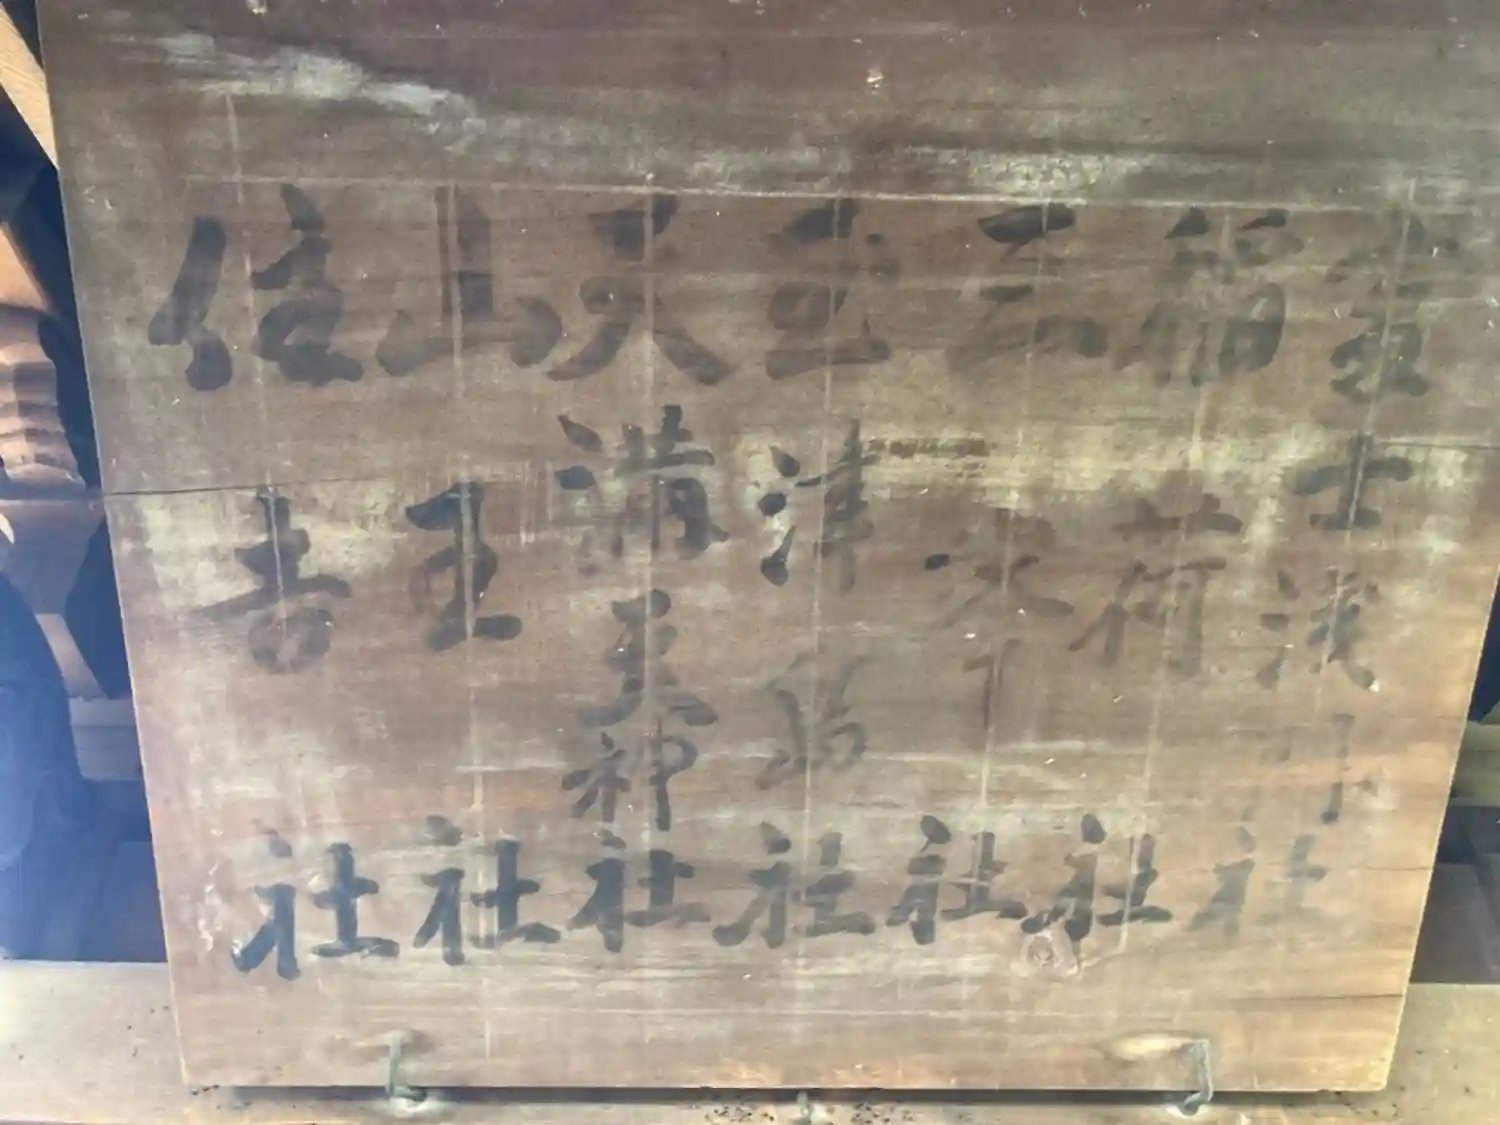 富士浅間社
稲荷社
三峯社
玉津嶋社
天満天神社
山王社
住吉社